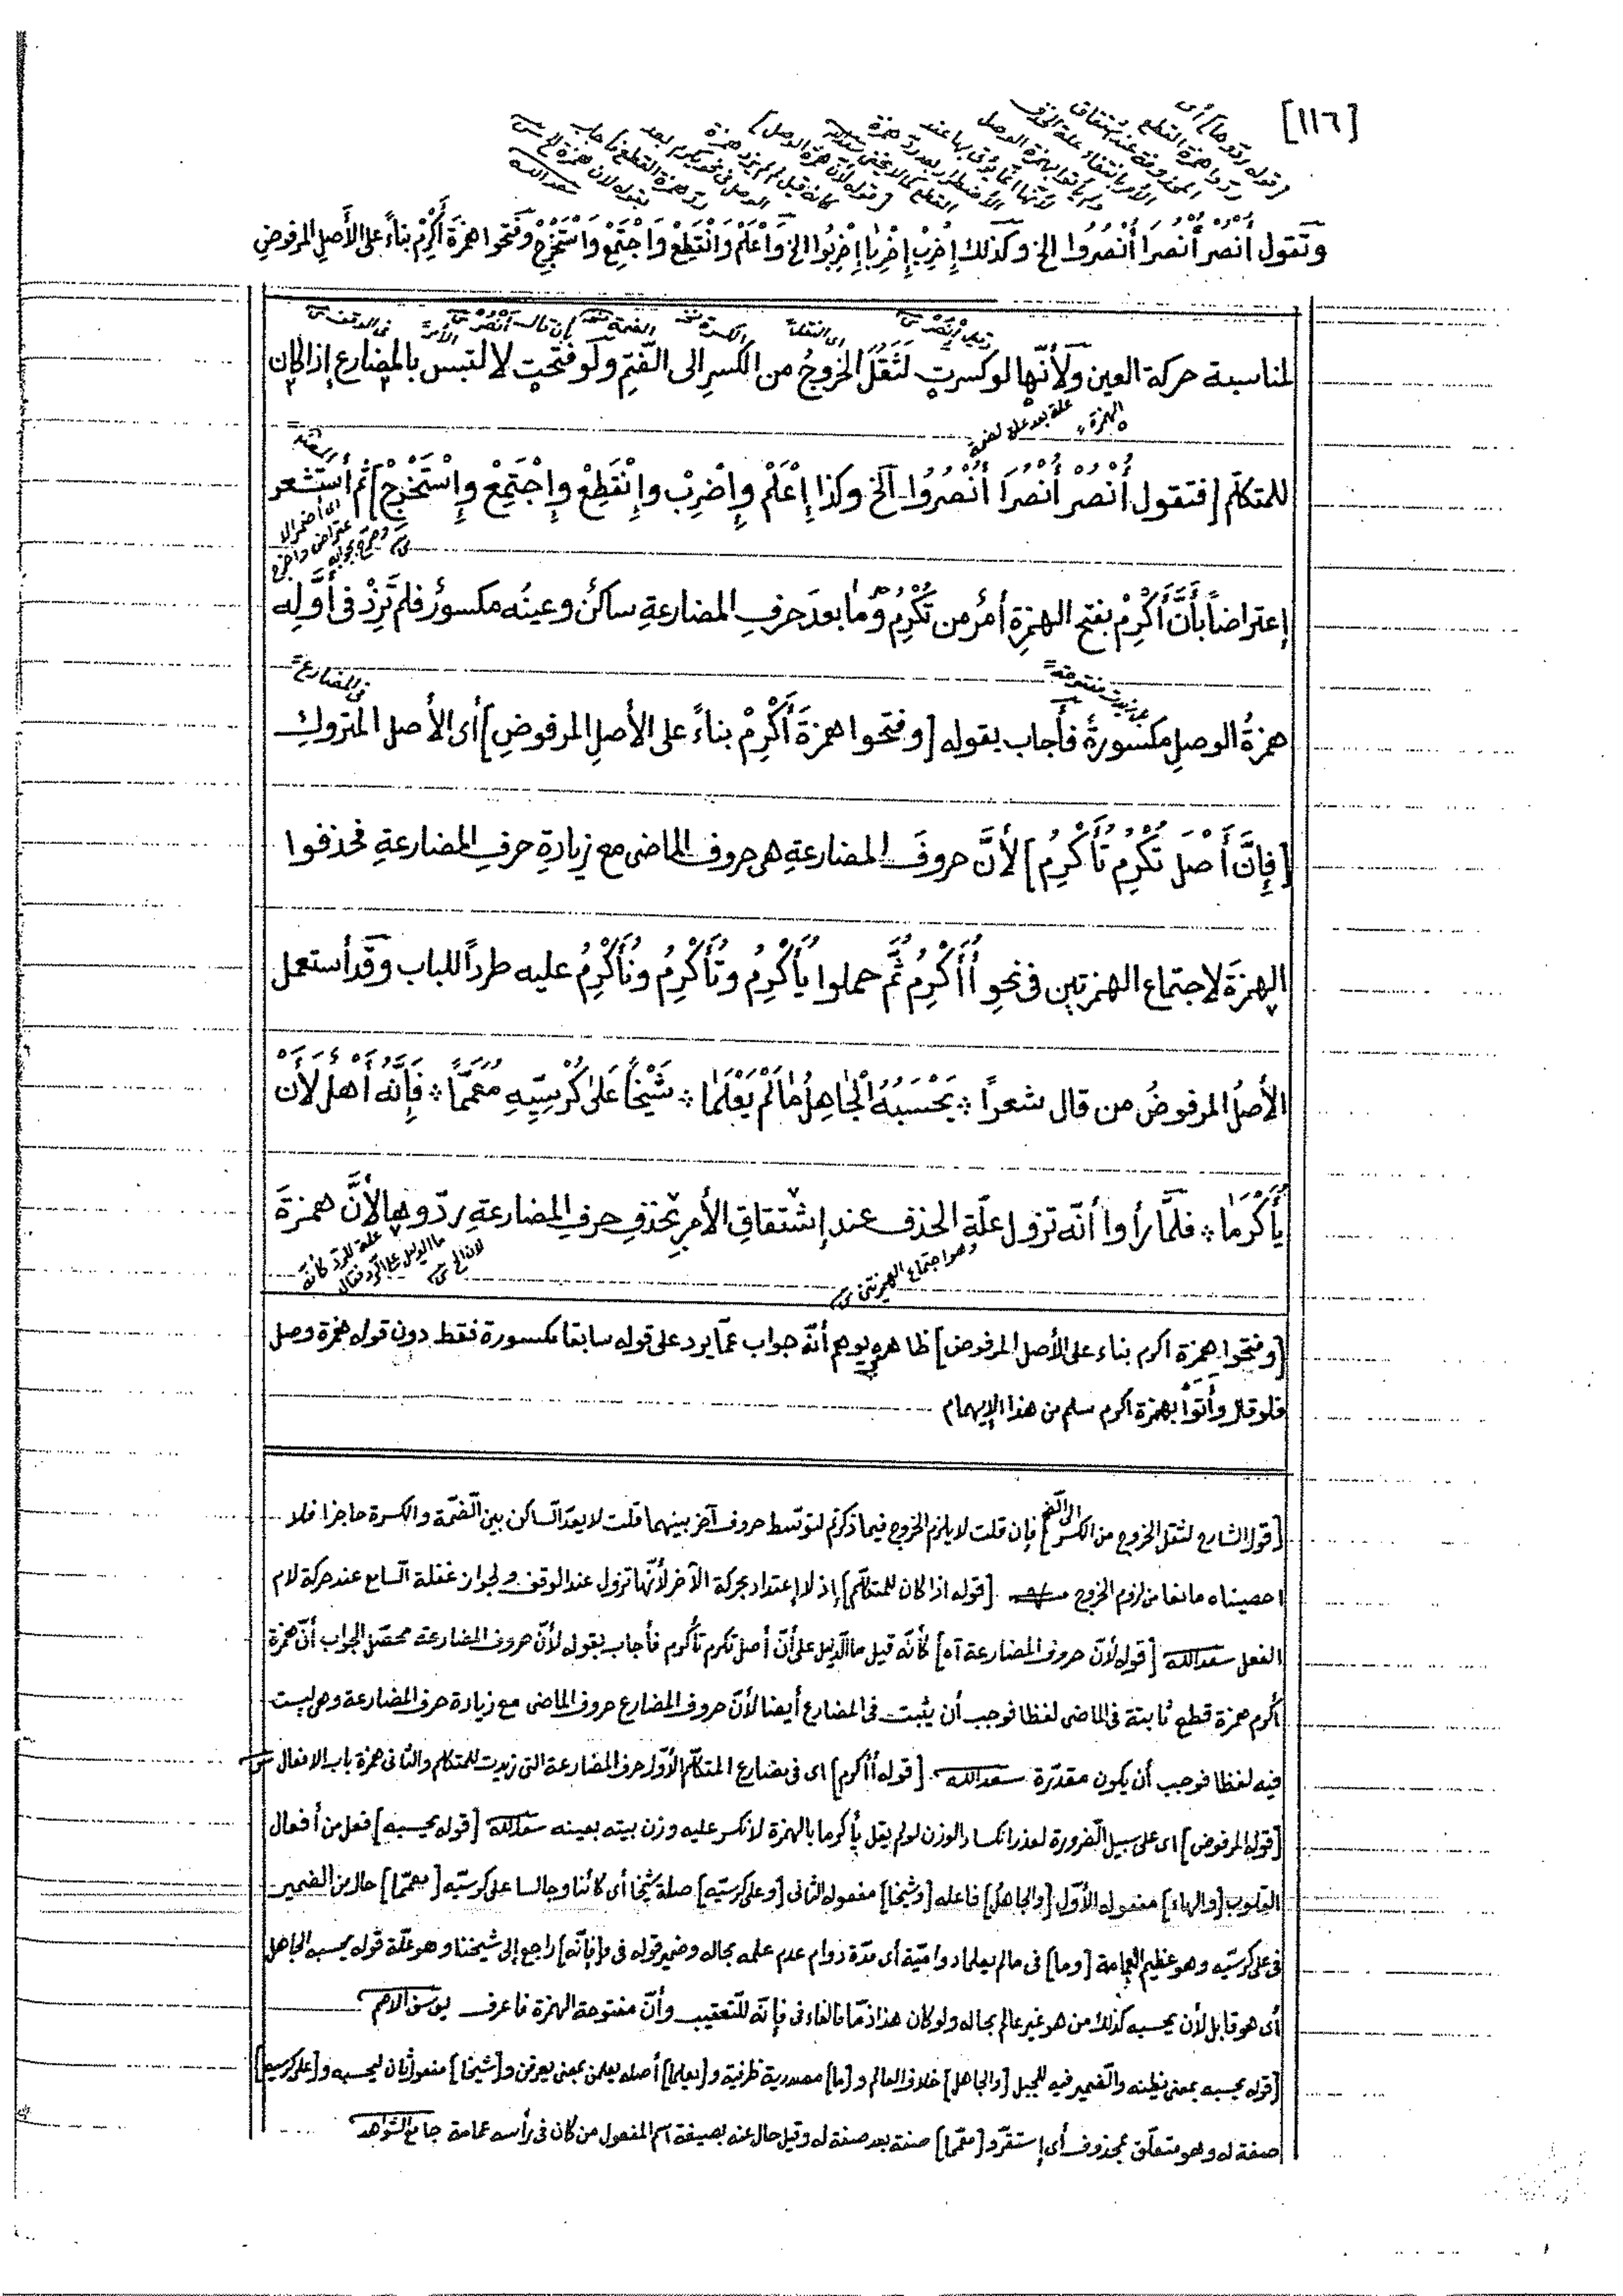 [١١٦]
وتقول أُنْصُرْ أُنْصُرَا أُنْصُرُوا الخ وكذلك إِضْرِبْ إِضْرِبَا إِضْرِبُوا الخ وَاعْلَمْ وَانْقَطِعْ وَاجْتَمِعْ وَاسْتَخْرِجْ وفتحوا همزة أَكْرِمْ بناءً على الأصل المرفوض
لمناسبة حركة العين ولأنّها لو كسرت لَثَقُلَ الخروجُ من الكسرِ الى الضّمِ ولو فتحت لا لتبس بالمضارع إذا كان
الهمزة علة بعد علة لضمة
للمتكلّم [فتقول أُنْصُرْ أُنْصُرَا أُنْصُرُوا الخ وكذا إِعْلَمْ وإِضْرِبْ وإِنْقَطِعْ وإِجْتَمِعْ وإِسْتَخْرِجْ] ثم أستشعر
إعتراضاً بأنَّ أَكْرِمْ بفتح الهمزةِ أمرٌ من تُكْرِمُ وما بعدَ حرفِ المضارعةِ ساكنٌ وعينُه مكسورٌ فلم تَزِدْ فى أوّلِه
فى المضارع
همزةُ الوصلِ مكسورةً فأجاب بقوله [وفتحوا همزةَ أَكْرِمْ بناءً على الأصلِ المرفوضِ] أى الأصل المتروكِ
[فإِنَّ أَصْلَ تُكْرِمُ تُأَكْرِمُ] لأنَّ حروفَ المضارعةِ هى حروف الماضى مع زيادةِ حرفِ المضارعةِ فحذفوا
الهمزةَ لإجتماع الهمزتين فى نحوِ أُأَكْرِمُ ثُمَّ حملوا يُأَكْرِمُ وتُأَكْرِمُ ونُأَكْرِمُ عليه طرداً للباب وقد أستعمل
الأصلُ المرفوضُ من قال شعراً ؞ يَحْسَبُهُ الْجَاهِلُ مَا لَمْ يَعْلَمَا ؞ شَيْخًا عَلَى كُرْسِيِّهِ مُعَمَّمًا ؞ فَإِنَّهُ أَهْلٌ لأَنْ
يُأَكْرَمَا ؞ فلمّا رأوا أنّه تزول علّة الحذف عند إشتقاقِ الأمرِ بحذفِ حرفِ المضارعةِ ردّوها لأنَّ همزةَ
وهو اجتماع الهمزتين
علة للردّ كأنّه
ما الدليل على الرّد فقال
لان الخ
[وفتحوا همزة اكرم بناء على الأصل المرفوض] ظاهره يوهم أنّه جواب عمّا يرد على قوله سابقا مكسورة فقط دون قوله همزة وصل
فلو قال وأَتَوْا بهمزة اكرم سلم من هذا الإيهام
[قول الشارح لثقل الخروج من الكسر الى الضّم] فإن قلت لا يلزم الخروج فيما ذكرتم لتوسّط حروف آخر بينهما قلت لا يعدّ السّاكن بين الضّمّة والكسرة حاجزا فلا
مانعا من لزوم الخروج [قوله اذا كان للمتكلّم] إذ لا إعتداد بحركة الآخر لأنّها تزول عند الوقف ولجواز غفلة السّامع عند حركة لام
الفعل سعد الله [قوله لأنّ حروف المضارعة آه] كأنّه قيل ما الدّليل على أنّ أصل تكرم تأكرم فأجاب بقوله لأنّ حروف المضارعة محصّل الجواب أنّ همزة
أكرم همزة قطع ثابتة فى الماضى لفظا فوجب أن يثبت فى المضارع أيضا لأنّ حروف المضارع حروف الماضى مع زيادة حرف المضارعة وهى ليست
فيه لفظا فوجب أن يكون مقدّرة سعد الله [قوله أأكرم] اى فى مضارع المتكلّم الأوّل حرف المضارعة التى زيدت للمتكلم والثانى همزة باب الافعال
[قوله المرفوض] اى على سبيل الضّرورة لعذر انكسار الوزن لو لم يقل يأكرما بالهمزة لانكسر عليه وزن بيته بعينه سعد الله [قوله يحسبه] فعل من أفعال
القلوب [والهاء] مفعوله الأوّل [والجاهل] فاعله [وشيخا] مفعوله الثانى [وعلى كرسيّه] صلة شيخا أى كائنا وجالسا على كرسيّه [معمّما] حال من الضمير
فى على كرسيّه وهو عظيم العمامة [وما] فى مالم يعلما دواميّة أى مدّة دوام عدم علمه بحاله وضمير قوله فى [فإنّه] راجع إلى شيخنا وهو علّة قوله يحسبه الجاهل
أى هو قابل لأن يحسبه كذلك من هو غير عالم بحاله ولو كان هذا ذمّا فالفاء فى فإنّه للتّعقيب وأنّ مفتوحة الهمزة فاعرف
[قوله يحسبه بمعنى يظنه والضّمير فيه للجبل [والجاهل] خلاف العالم و[ما] مصدرية ظرفية و[يعلما] أصله يعلمن بمعنى يعرفن و[شيخا] مفعول ثان ليحسبه و[على كرسيه]
صفة له وهو متعلّق بمحذوف أى إستقرّ و[معمّما] صفة بعد صفة له وقيل حال عنه بصيغة اسم المفعول من كان فى رأسه عمامة جامع الشّواهد